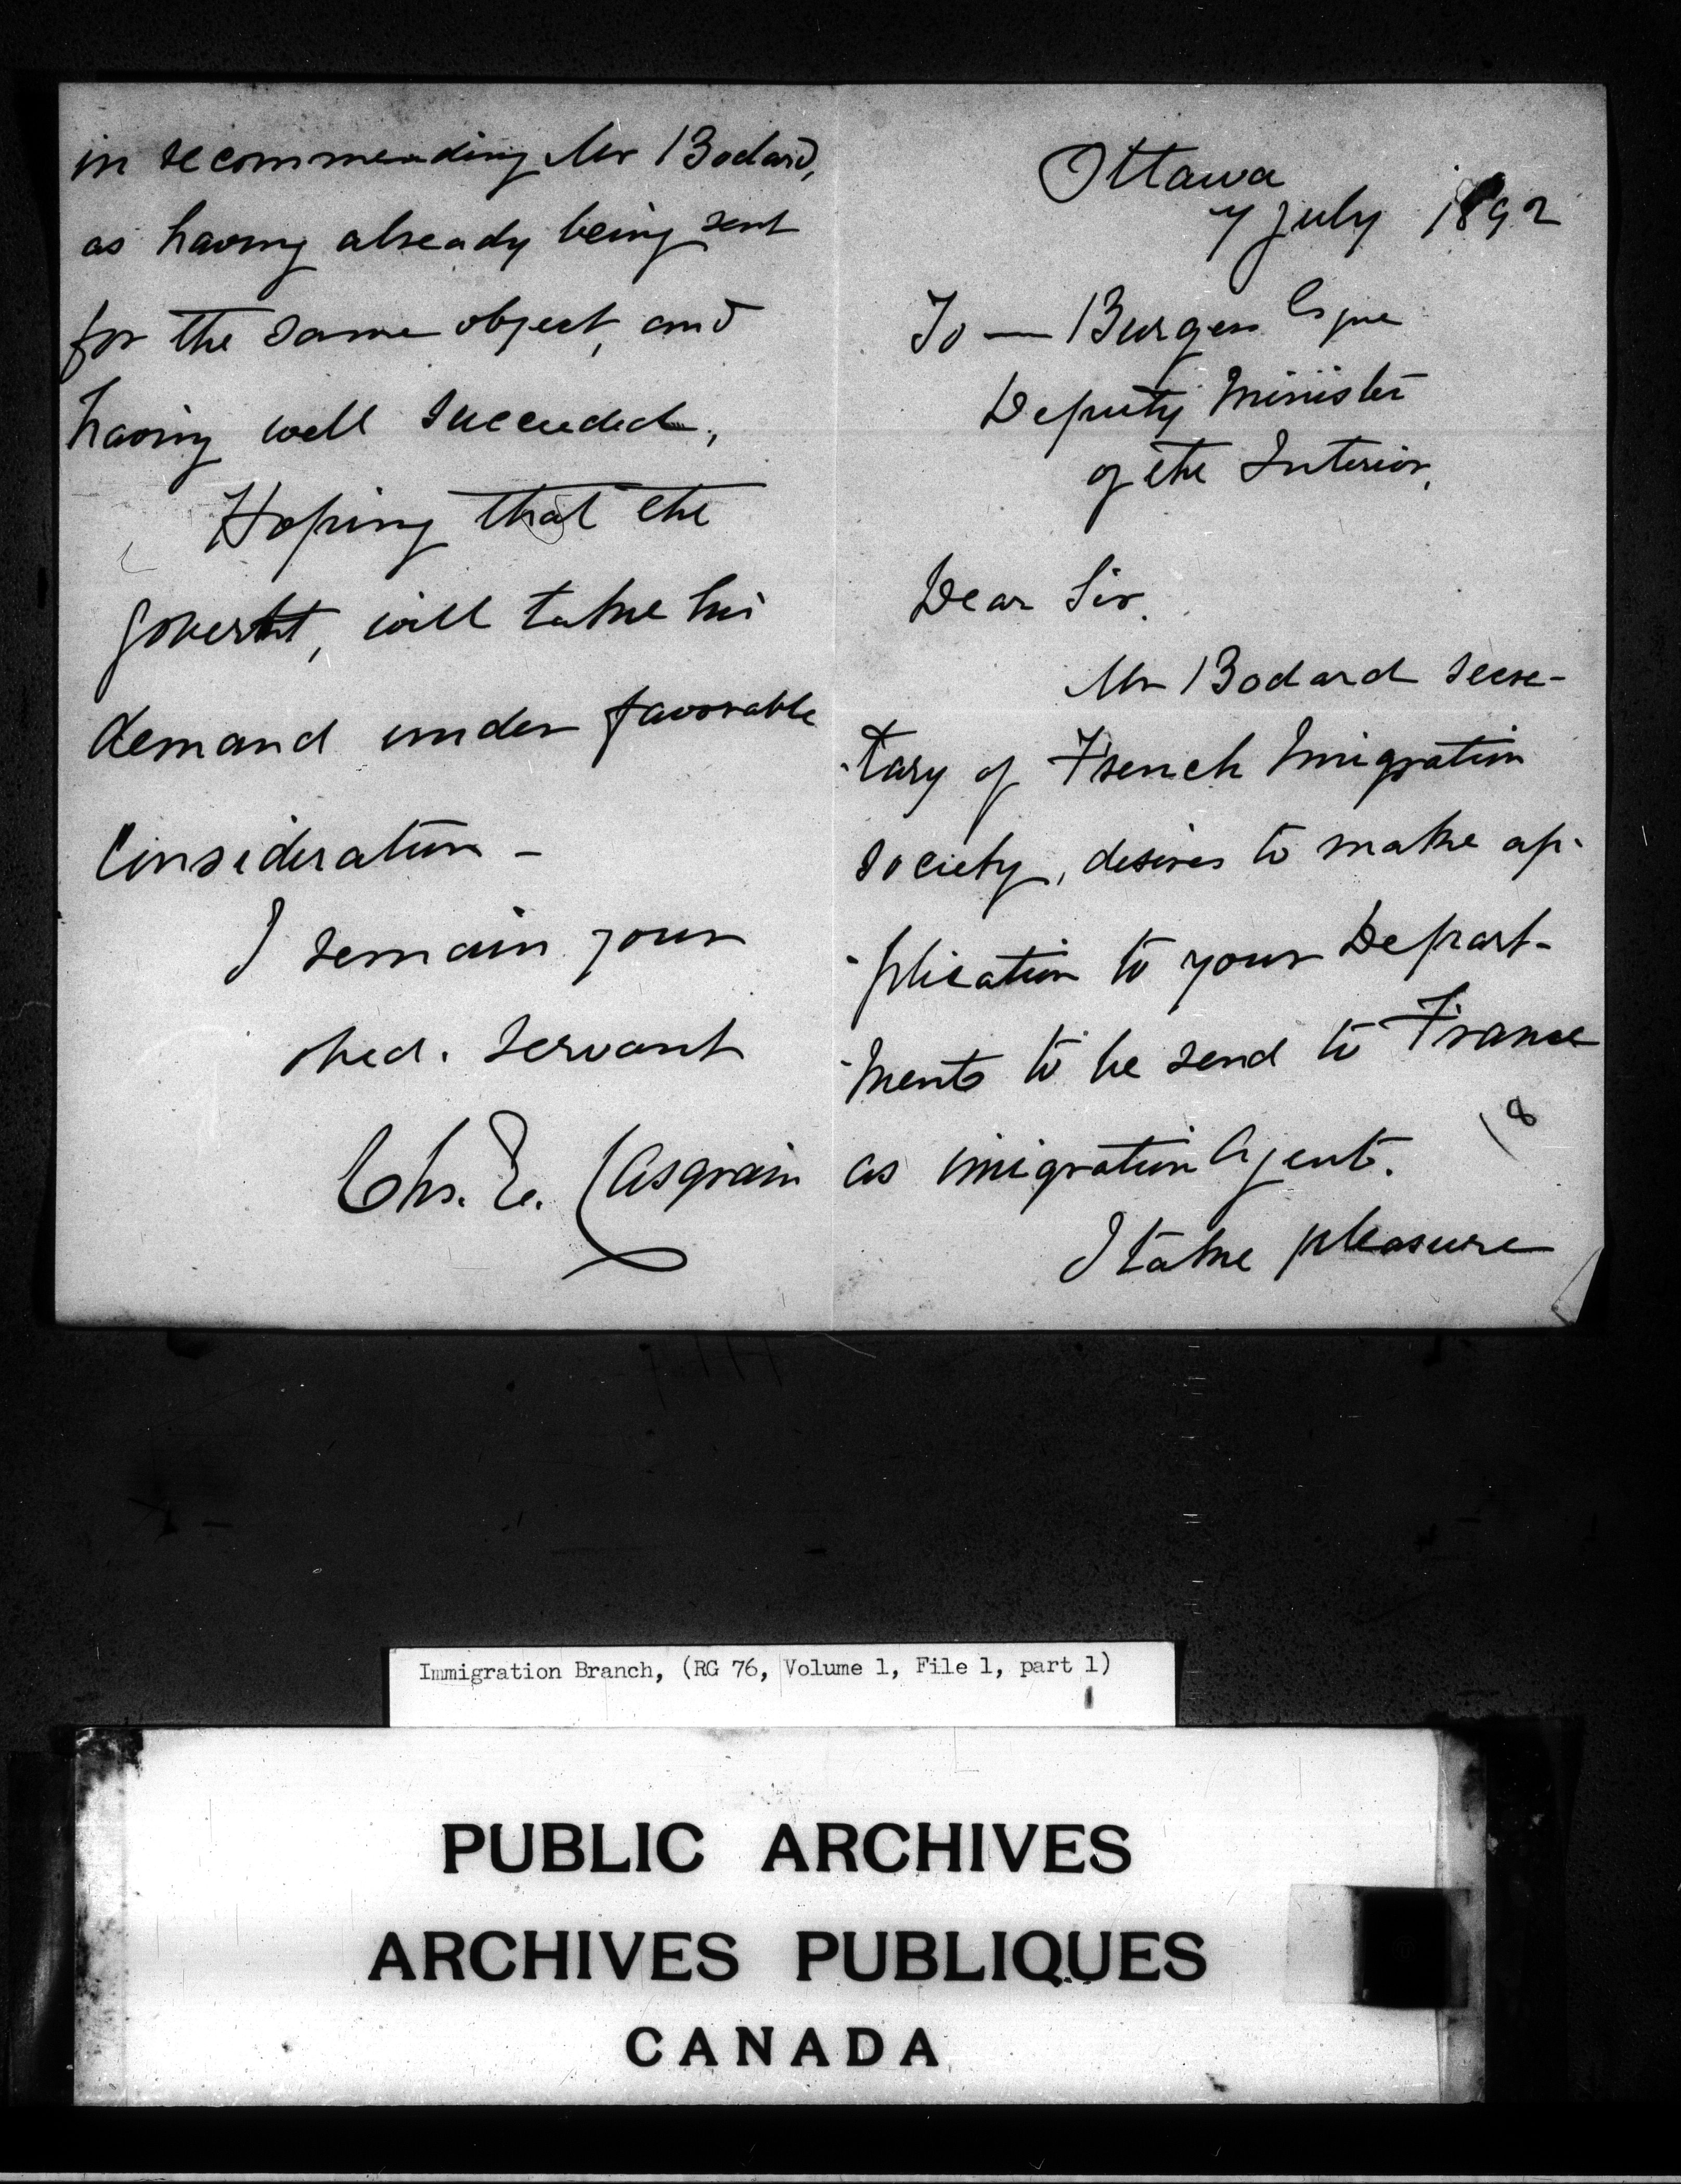 Ottawa
7 July 1892
To — Burgess Esque
Deputy Minister
of the Interior,
Dear Sir.
Mr Bodard secre-
-tary of French Imigration
Society, desires to make ap-
-plication to your Depart-
-ment to be send to France
18
as imigration Agent.
I take pleasure
in recommending Mr Bodard,
as having already being sent
for the same object, and
having well succeeded,
Hoping that the
Governt, will take his
demand under favorable
consideration -
I remain your
obed. servant
Chs. E. Casgrain
Immigration Branch, (RG 76, Volume 1, File 1, part 1)
PUBLIC ARCHIVES
ARCHIVES PUBLIQUES
CANADA